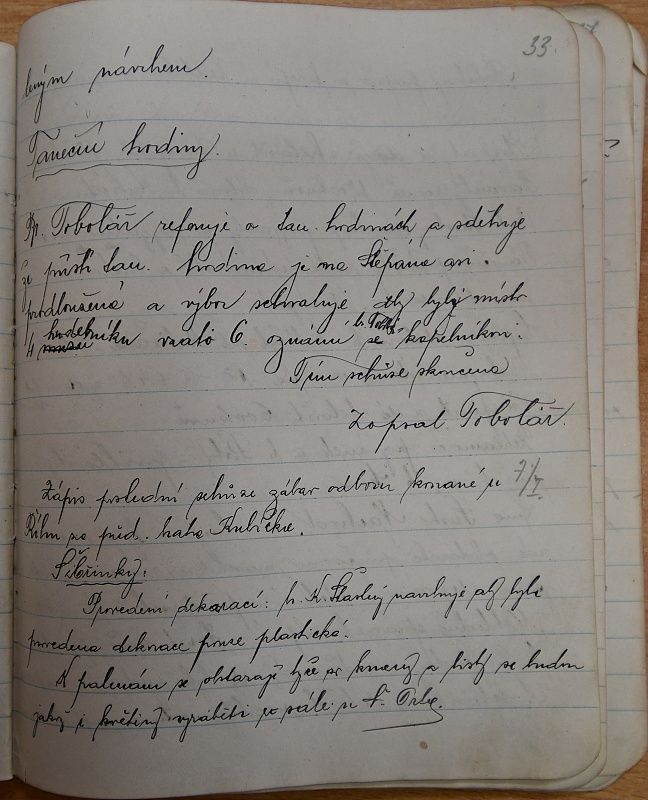 33.
leným návrhem.
Taneční hodiny.
Br. Tobolář referuje o tan. hodinách a sděluje
že příští tan. hodina je na Štěpána asi.
prodloužená a výbor schvaluje aby bylo místr
4 hudebníku vzato 6. oznámí br. Tob. se kapelníkovi.
Tím schůze skončena
Zapsal Tobolář.
Zápis poslední schůze zábav. odboru konané u 7/I
Říhu za před. bratra Kubíčka.
Šibřinky.
Provedení dekorací: b. K. Šťastný navrhuje aby byla
provedena dekorace pouze plastická.
K palmám se obstarají tyče pr kmeny a listy se budou
jakož i květiny vyráběti ve sále u b.